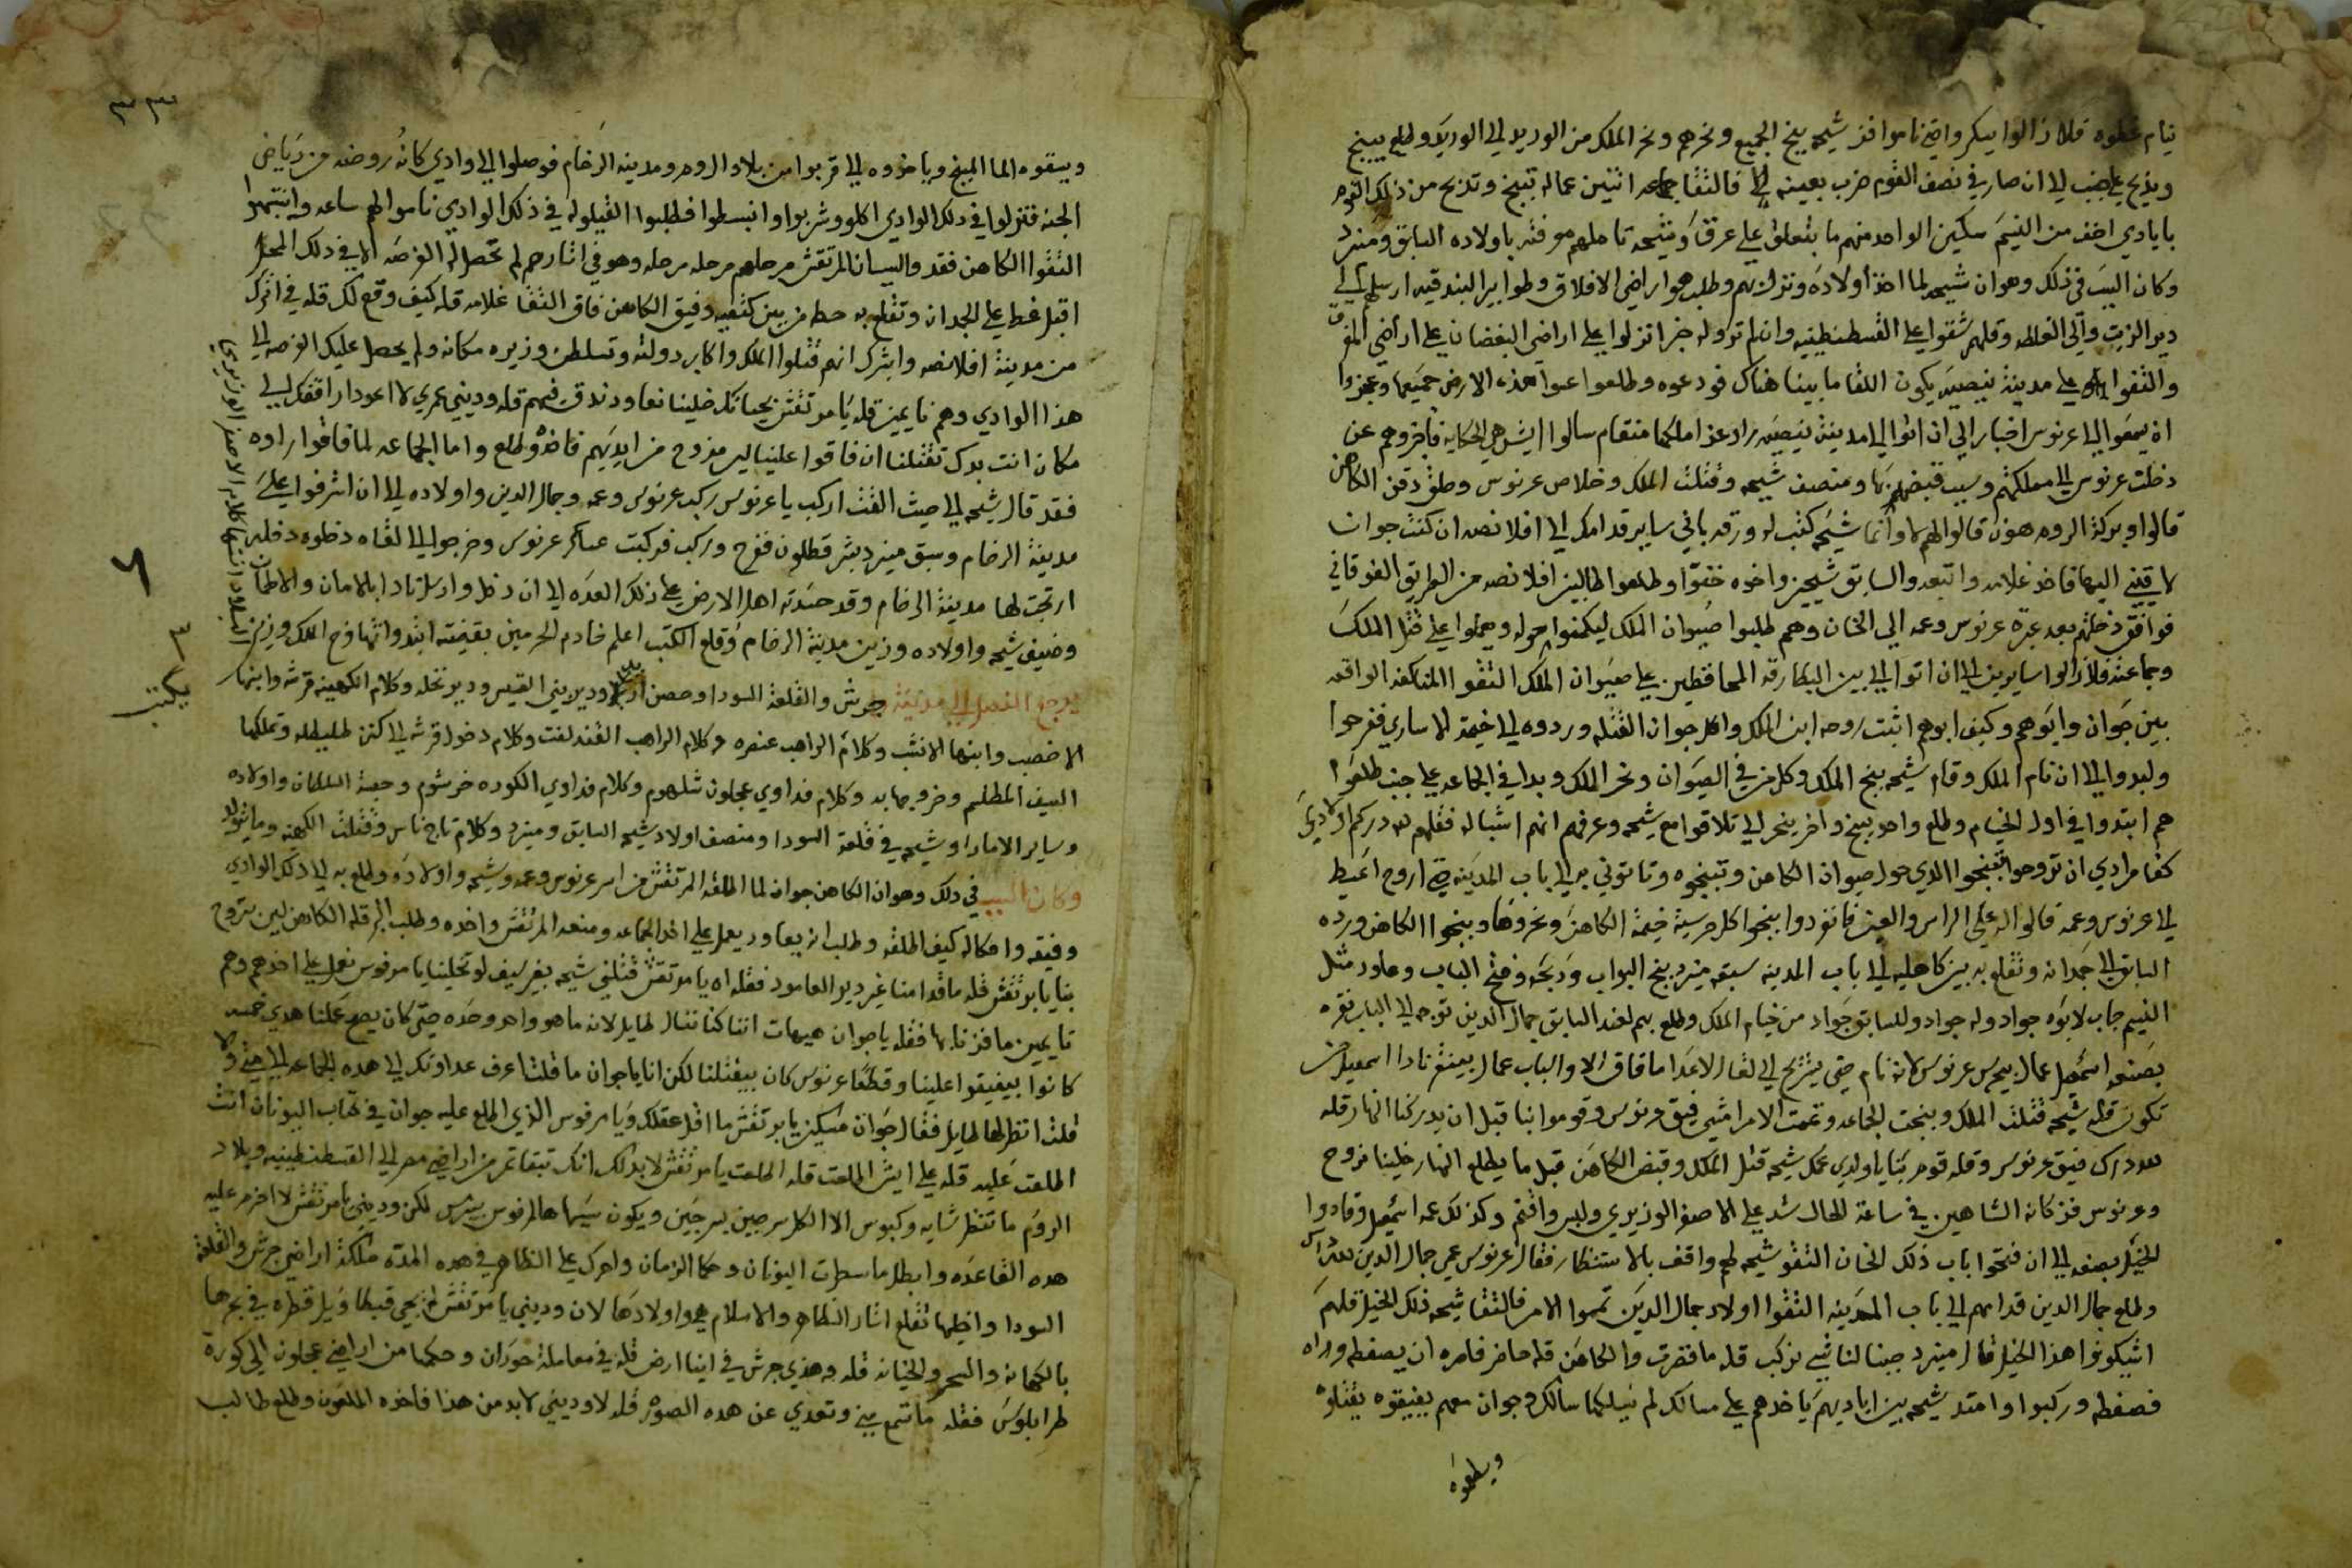 نيام غطوه فلا زالوا يسكروا حتى ناموا فز شيحه بنج الجميع ونحرهم ونحر الملك من الوريد الى الوريد وطلع يبنج
ويذبح على جنب الى ان صار في نصف القوم ضرب بعينه فالتقا جماعه اثنين عماله تبنج وتذبح من ذلك القوم
بايادي اخف من النسيم سكين الواحد منهم ما بتعلق على عرق وشيحه تاملهم موفته باولاده السابق ومنرد
وكان السبب في ذلك وهو ان شيحه لما اخذ اولاده ونزل بهم وطلب هو اراضي الافلاق وطوابير البندقيه ارسلهم الى
دير الزيت والى الغلطه وقلهم شقوا على القسطنطينيه وان لم تروا له خبر انزلوا على اراضي البغضان على اراضي
والتقوا على مدينة ينصيه يكون اللقا ما بينا هناك فودعوه وطلعوا عبوا هذه الارض جميعها وعجزوا
ان يسمعوا الى عرنوس اخبار الى ان اتوا الى مدينة ينصيه زاد عز املكها منتقام سالوا ايش هي الحكايه فاخبروهم عن
دخلت عرنوس الى مملكتهم وسبب قبضهم بها ومنصف شيحه وقتلت الملك وخلاص عرنوس وحلق دقن الكاهن
قالوا وبركة الروم هون قالوا لهم لا وانما شيحه كتب له ورقه باني ساير قدامك الى افلانصه ان كنت جوان
لاقيني اليها فاخذ غلامه واتبعه والسابق شيحين واخوه خفوا وطلعوا طالبين افلانصه من الطريق الفوقاني
فوافق دخلتهم بعد عبرة عرنوس وعمه الى الخان وهم طلبوا صيوان الملك ليكمنوا حوله ويعملوا على قتل الملك
وجماعته فلا زالوا سايرين الى ان اتوا الى بين البطارقه المحافظين على صيوان الملك التقوا المناكفه الواقعه
بين جوان وابوهم وكيف ابوهم اثبت روحه ابن الملك واكل جوان القتله وردوه الى خيمة الاساري ففرحوا
ولبدوا الى ان نام الملك وقام شيحه بنج الملك وكل من في الصيوان ونحر الملك وبدا في الجماعه على جنب طلعوا
هم ابتدوا في اول الخيام وطلع واحد يبنج واخر ينحر الى تلاقوا مع شيحه وعرفهم انهم اشباله فقلهم لله دركم اولادي
كفا مرادي ان تروحوا تبنجوا الذي حول صيوان الكاهن وتبنجوه وتاتوني به الى باب المدينه حتى اروح اعيط
الى عرنوس وعمه قالوا له على الراس والعين فانفردوا بنجوا كل حرسية خيمة الكاهن ونحروها وبنجوا الكاهن ورده
السابق الى جمدانه وتقلع به بين كاهليه الى باب المدينه سبقه منرد بنج البواب ودبحه وفتح الباب وعاود مثل
النسيم جاب لابوه جواد وله جواد وللسابق جواد من خيام الملك وطلع بهم لعند السابق جمال الدين توجه الى الباب نقره
بصنعه اسمعيل عمال بيحرس عرنوس لانه نام حتى يستريح الى لقا الاعدا ما فاق الا والباب عمال بينقر نادا اسمعيل من
تكون قله شيحه قتلت الملك وبنجت الجماعه وتمت الامر امشي فيق عرنوس وقوموا بنا قبل ان يدركنا النهار قله
فيق عرنوس وقله قوم بنا يا ولدي عمك شيحه قتل الملك وقبض الكاهن قبل ما يطلع النهار خلينا نروح
وعرنوس فز كانه الشاهين في ساعة الحال شد على الاصفر الوزيري ولبس واقتم وكذلك عمه اسمعيل وقادوا
الخيل بصنعه الى ان فتحوا باب ذلك الخان التقوا شيحه لهم واقف بالاستنظار فقال عرنوس عمي جمال الدين
وطلع جمال الدين قدامهم الى باب المدينه التقوا اولاد جمال الدين تمموا الامر فالتقا شيحه ذلك الخيل قلهم
اشيكونوا هذا الخيل قال منرد جبنا لنا شي نركب قله ما قصرت والكاهن قله حاضر فامره ان يصفطه وراه
فصفطه وركبوا وامتد شيحه بين اياديهم ياخدهم على مسالك لم يسلكها سالك وجوان معهم يفيقوه يقتلوه
ويطعموه
٣٣
ويسقوه الما المبنج وياخدوه الى قربوا من بلاد الروم ومدينه الرخام فوصلوا الى وادي كانه روضه من رياض
الجنه فنزلوا في ذلك الوادي اكلوا وشربوا وانبسطوا فطلبوا القيلوله في ذلك الوادي ناموا لهم ساعه وانتبهوا
التقوا الكاهن فقد والسبب ان المرتقش مرحلهم مرحله مرحله وهو في اثارهم لم تحصل له الفرصه الا في ذلك المحل
اقبل غط على الجمدان وتقلع به حطه من بين كتفيه وفيق الكاهن فاق التقا غلامه قله كيف وقع لك قله في اثرك
من مدينة افلانصه وابشرك انهم قتلوا الملك واكابر دولته وتسلطن وزيره مكانه ولم يحصل عليك الفرصه الى
هذا الوادي وهم نايمين قله يا مرتقش بحياتك خلينا نعاود ندق فيهم قله وديني عمري لا اعود ارافقك الى
مكان انت بدك تقتلنا ان فاقوا علينا ليس مزدوح من ايديهم فاخذه وطلع واما الجماعه لما فاقوا راوه
فقد قال شيحه الى حيث القت اركب يا عرنوس ركب عرنوس وعمه وجمال الدين واولاده الى ان اشرفوا على
مدينة الرخام وسبق منرد بشر قطلون ففرح وركب فركبت عساكر عرنوس وخرجوا الى لقاه دخلوه دخله
ارتجت لها مدينة الرخام وقد حسدته اهل الارض على ذلك العده الى ان دخل وارسل نادا بالامان والاطمان
وضيف شيحه واولاده وزين مدينة الرخام وقلع الكتب اعلم خادم الحرمين بقيضته ابتدوا تمها فرح الملك وزين البلاد انتها كلام الاصفر الوزيري
يرجع الفصل الى مدينة جرش والقلعة السودا وحصن اربد ودير بني القيس ودير نخله وكلام الكهينه قرشه وابنها
٦
٣
يكتب
الاخضب وابنها الانتب وكلام الراهب عنصره وكلام الراهب القندلفت وكلام دخول قرشه الى كنز طليطله وتملكها
السيف المطلسم وخروجها به وكلام فداوي عجلون شلهوم وكلام فداوي الكوره خرشوم وجمعة السلطان واولاده
وساير الامارا وشيحه في قلعة السودا ومنصف اولاد شيحه السابق ومنرد وكلام تاج ناس وقتلت الكهينه وما يتولد
وكان السبب في ذلك وهو ان الكاهن جوان لما اطلقه المرتقش من اسر عرنوس وعمه وشيحه واولاده وطلع به الى ذلك الوادي
وفيقه واحكاله كيف اطلقه وطلب انه يعاود يعمل على اخد الجماعه ومنعه المرتقش واخده وطلب البر قله الكاهن لين بتروح
بنا يا برتقش قله ما قدامنا غير دير العامود فقله اه يا مرتقش قتلني شيحه بغير سيف لو تخلينا يا مرفوس نعمل على اخدهم وهم
نايمين ما فزنا بها فقله يا جوان هيهات اننا كنا ننال طايل لانه ما هو واحد وحده حتى كان يصح عملنا هدي خمسه
كانوا بيفيقوا علينا وقطعا عرنوس كان بيقتلنا لكن انا يا جوان ما قلت اعرف عداوتك الى هده الجماعه الى متى ولا
قلت انظر لها طايل فقال جوان مسكين يا برتقش ما اقل عقلك ويا مرفوس الذي اطلع عليه جوان في كتاب اليونان انت
اطلعت عليه قله على ايش اطلعت قله اطلعت يا مرتقش لابد لك انك تبقا تمر من اراضي مصر الى القسطنطينيه وبلاد
الروم ما تنظر شايه وكبوس الا الكل سرجين بسرجين ويكون سيسها هالمرفوس بيبرس لكن وديني يا مرتقش لا اخرم عليه
هده القاعده وابطل ما سطرت اليونان وحكما الزمان واحرك على الظاهر في هده المده ملكة اراضي جرش والقلعة
السودا واخليها تقلع اثار الظاهر والاسلام هي واولادها لان وديني يا مرتقش قطره في بحرها
بالكهانه والسحر والخيانه قله وهذي جرش في اينا ارض قله في معاملة حوران وحكمها من اراضي عجلون الى كورة
طرابلوس فقله ما تسمع مني وتعدي عن هده الصوره قله لا وديني لابد من هذا فاخده الملعون وطلع طالب